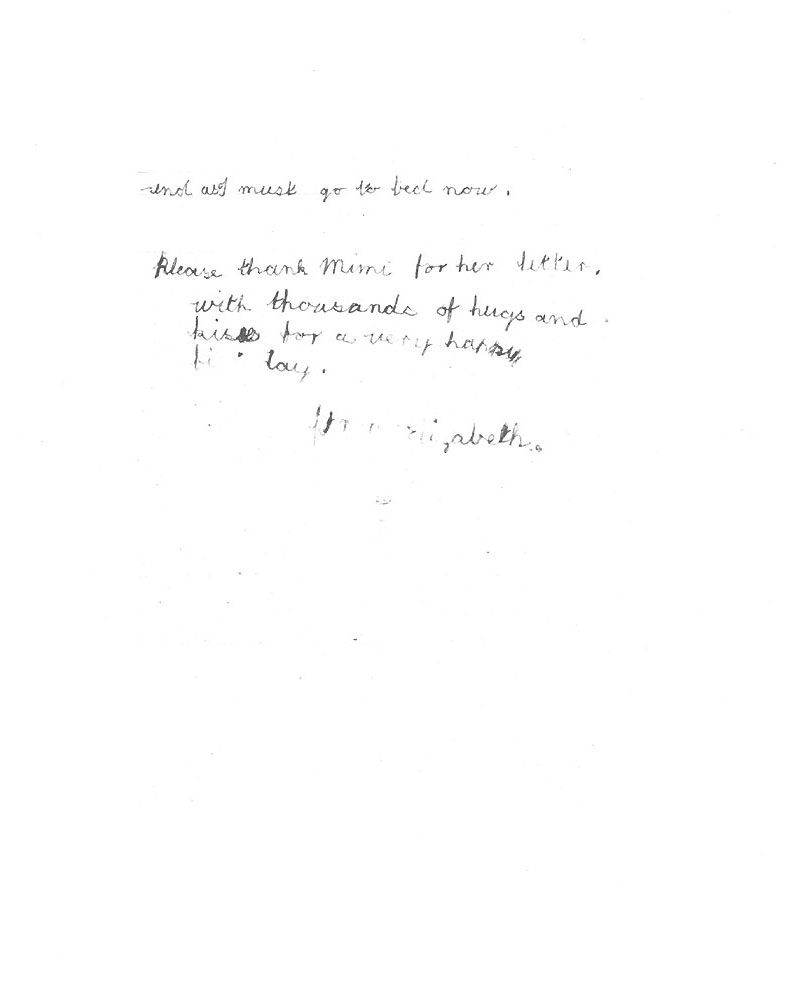 and as I must go to bed now.
Please thank Mimi for her letter.
with thousands of hugs and
kisses for a very happy
from Elizabeth.